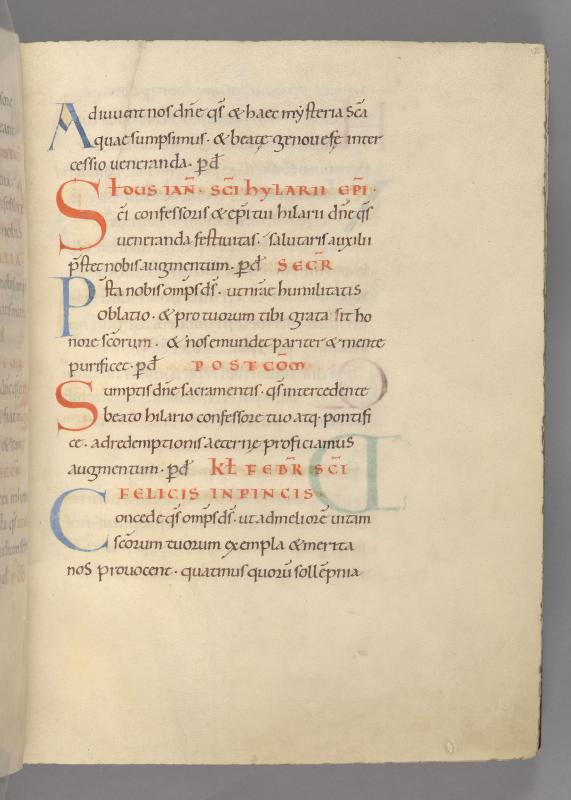 Adiuuent nos dn̄e qs̄ & haec mysteria sc̄a
quae sumpsimus · & beatę genouefę inter
cessio ueneranda · p̄d
Stous ian̄ · sc̄i hylarii ep̄i ·
c̄i confessoris & ep̄i tui hilarii dn̄e qs̄
ueneranda festiuitas · salutaris auxilii
p̄stet nobis augmentum · p̄d secr̄
P̄sta nobis omp̄s ds̄ · ut nr̄ae humilitatis
oblatio · & pro tuorum tibi grata sit ho
nore sc̄orum · & nos emundet pariter & mente
purificet · p̄d postcōm
Sumptis dn̄e sacramentis · qs̄ intercedente
beato hilario confessore tuo atq· pontifi
ce · ad redemptionis aeternę proficiamus
augmentum · p̄d kł febr̄ sc̄i
felicis in pincis ·
Concede qs̄ omp̄s ds̄ · ut ad meliorē uitam
sc̄orum tuorum exempla & merita
nos prouocent · quatinus quorū sollēpnia